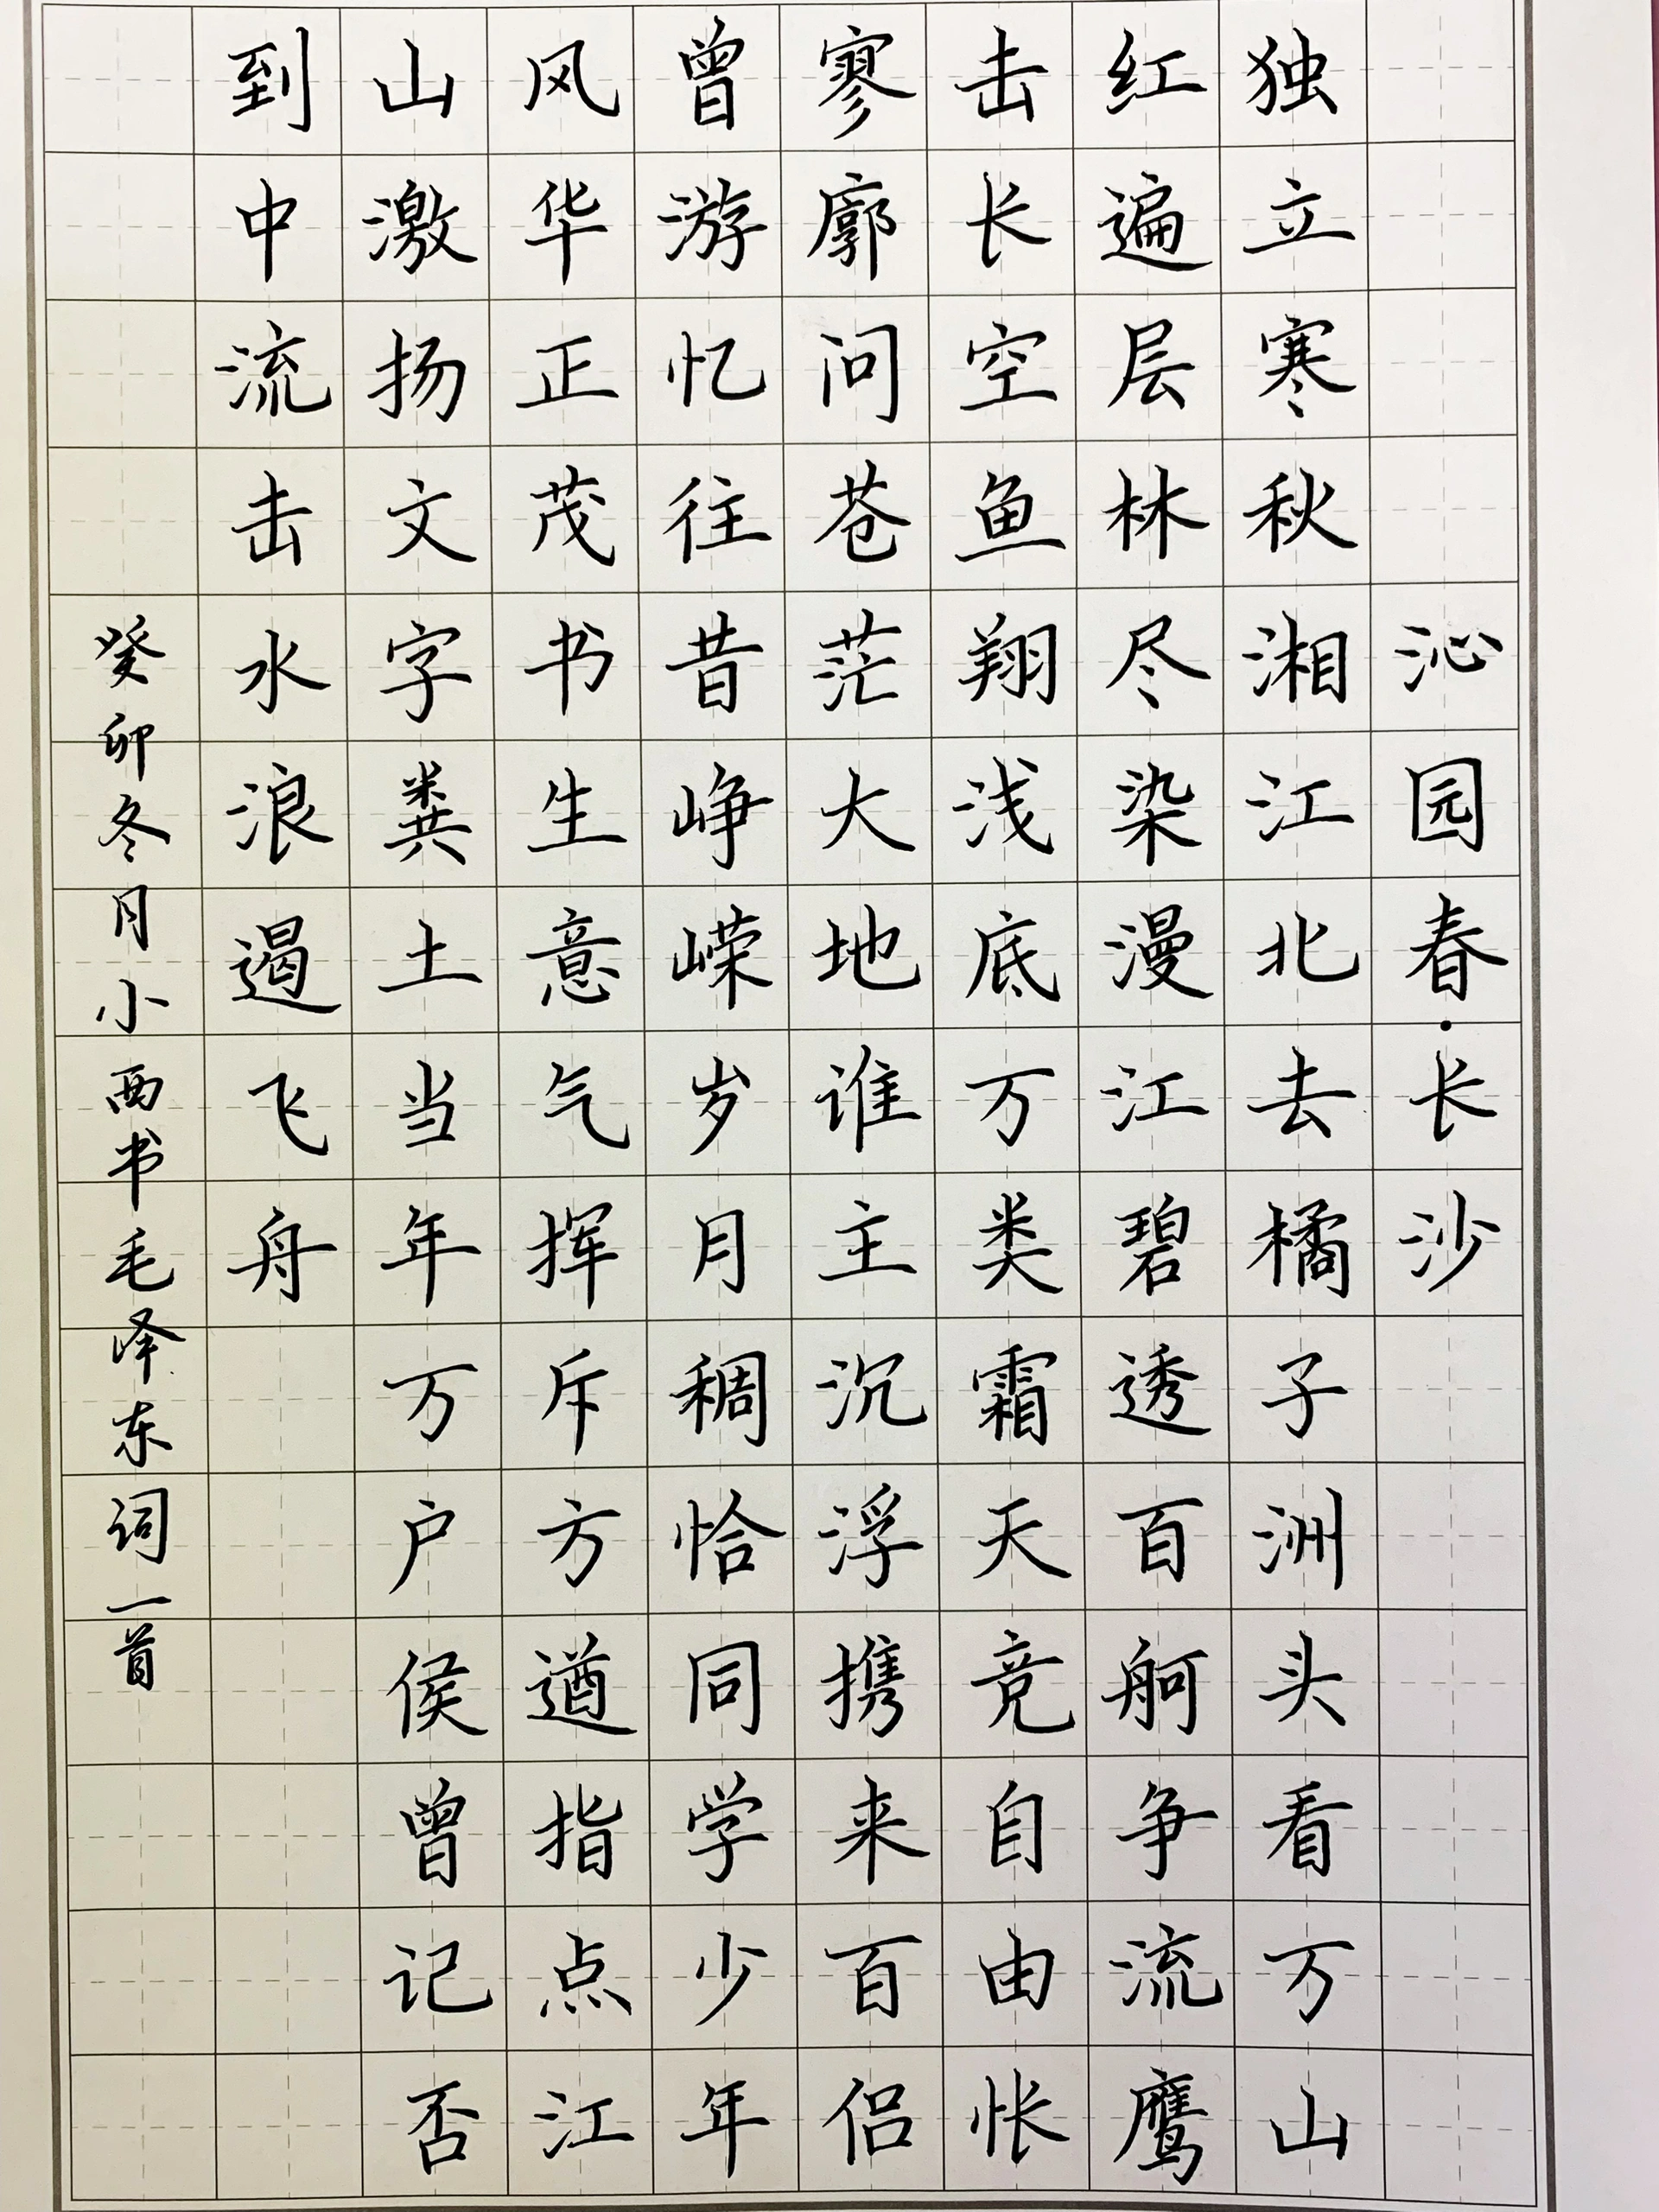 沁园春·长沙
独立寒秋湘江北去橘子洲头看万山
红遍层林尽染漫江碧透百舸争流鹰
击长空鱼翔浅底万类霜天竞自由怅
寥廓问苍茫大地谁主沉浮携来百侣
曾游忆往昔峥嵘岁月稠恰同学少年
风华正茂书生意气挥斥方遒指点江
山激扬文字粪土当年万户侯曾记否
到中流击水浪遏飞舟
癸卯冬月小西书毛泽东词一首